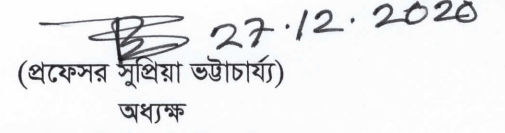 27.12.2020
(প্রফেসর সুপ্রিয়া ভট্টাচার্য্য)
অধ্যক্ষ